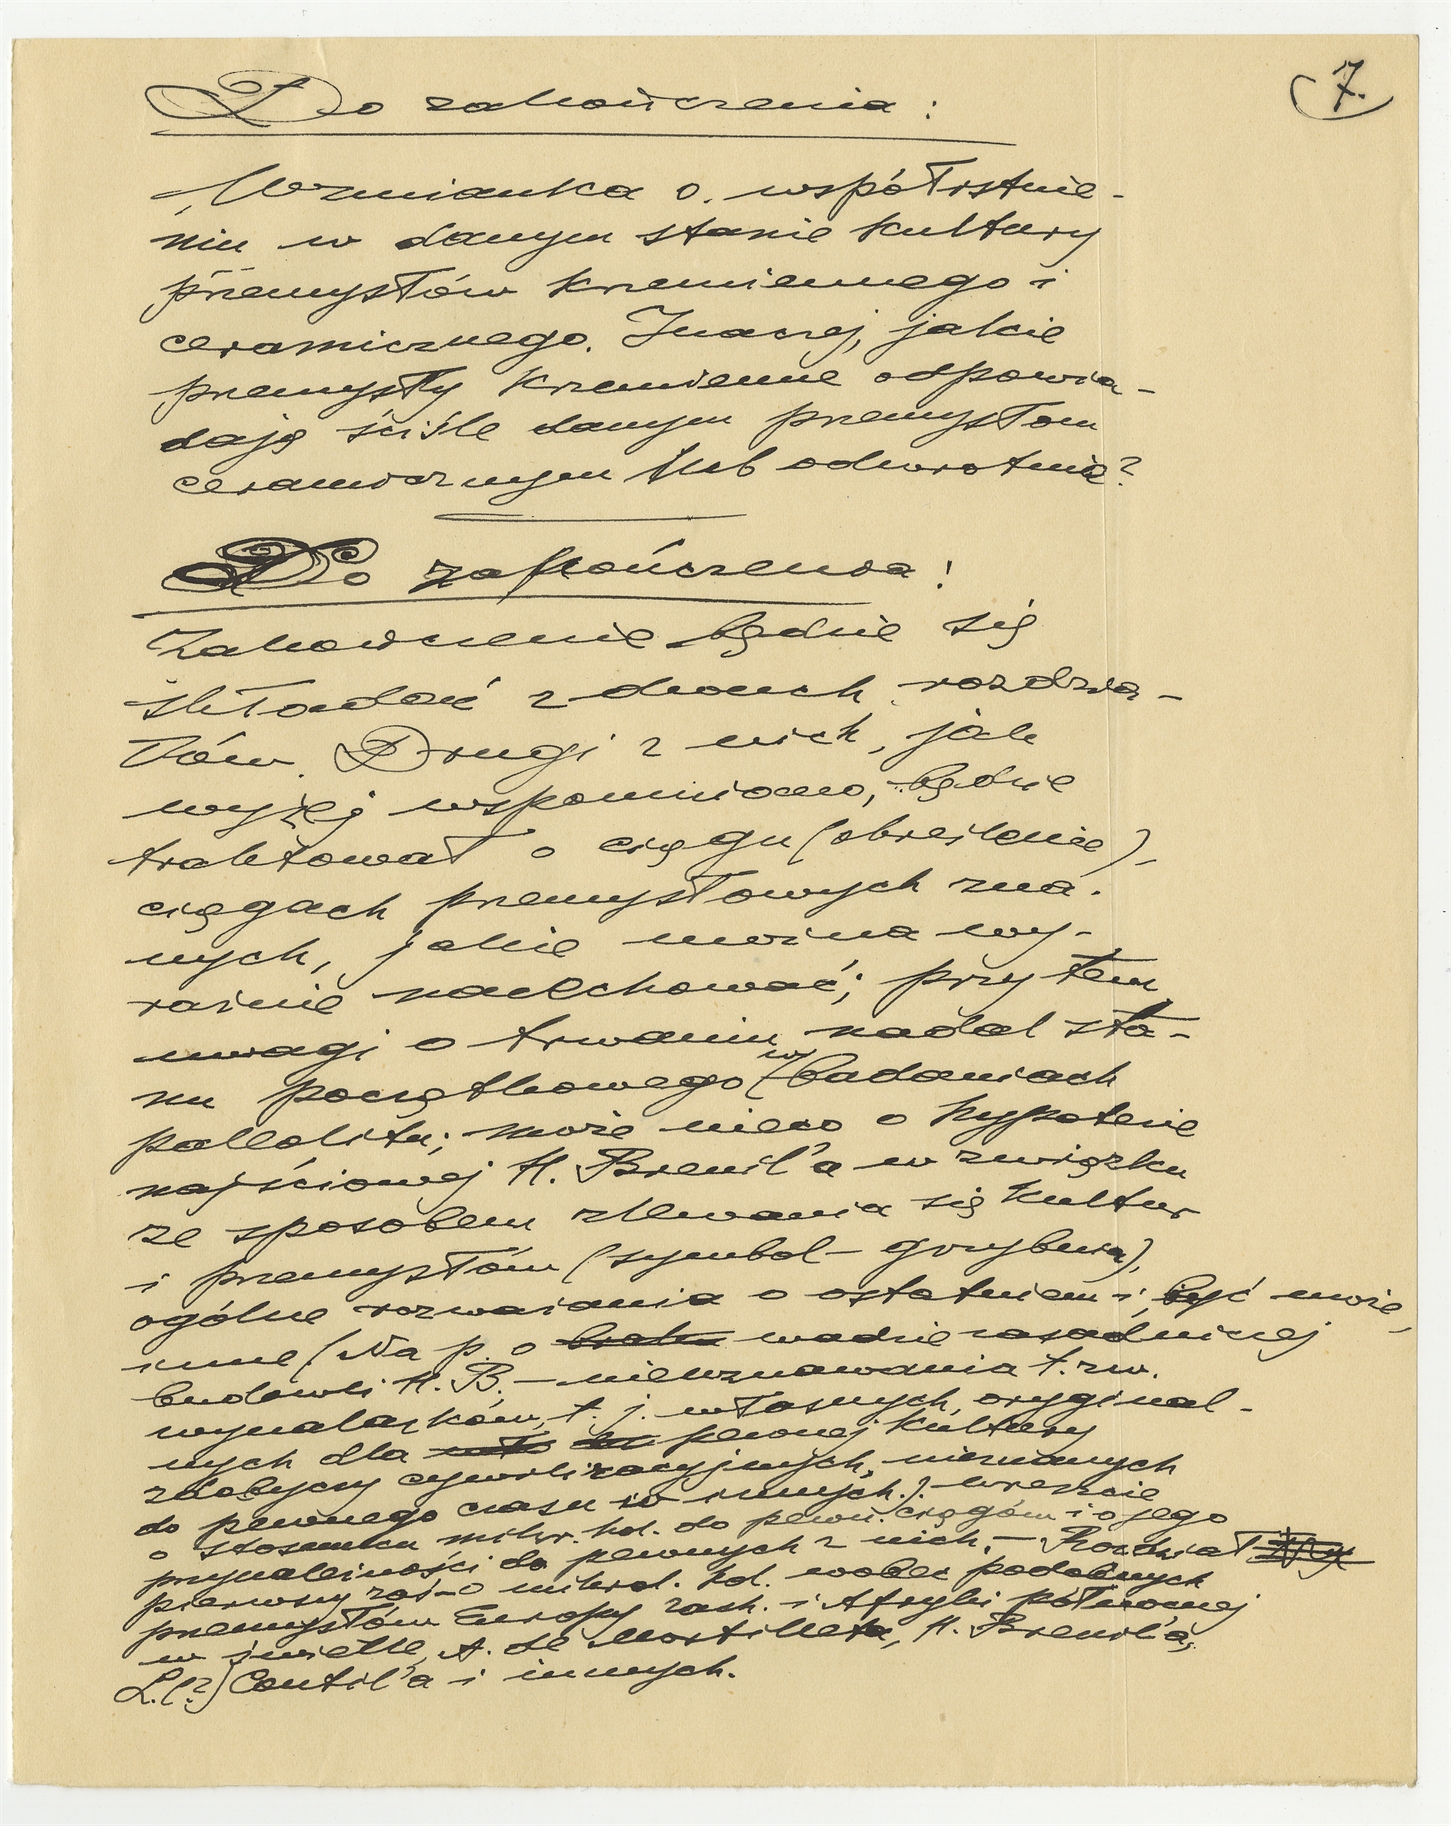 7.
Do zakończenia:
Wzmianka o współistnie-
niu w danym stanie kultury
przemysłów krzemiennego i
ceramicznego. Inaczej, jakie
przemysły krzemienne odpowia-
dają ściśle danym przemysłom
ceramicznym lub odwrotnie?
Do zakończenia!
Zakończenie będzie się
składać z dwuch rozdzia-
łów. Drugi z nich, jak
wyżej wspomniano, będzie
traktował o ciągu (określenie),
ciągach przemysłowych zna-
nych, jakie można wy-
raźnie nacechować; przy tem
uwagi o trwaniu nadal sta-
nu początkowego w badaniach
paleolitu; może nieco o hypotezie
najściowej H. Breuil'a w związku
ze sposobem zlewania się kultur
i przemysłów (symbol – grzybnia),
ogólne rozważania o ostatniem i, być może,
inne (Na p. o braku wadzie zasadniczej
budowli H. B. – nieuznawania t. zw.
wynalazków, t. j. własnych, oryginal-
nych dla pewnej kultury
zdobyczy cywilizacyjnych, nieznanych
do pewnego czasu w innych.). wreszcie
o stosunku mikr. kd. do pewn. ciągów i o jego
przynależności do pewnych z nich. – Rozdział
pierwszy zaś – o mikrol. kd. wobec podobnych
przemysłów Europy zach. i Afryki północnej
w świetle A. de Mortilleta, H. Breuil'a,
L. (?) Coutil'a i innych.